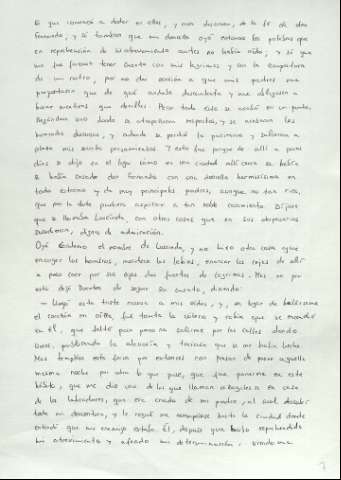 que comencé a dudar en ella, y aun descreer, de la fe de don
Fernando; y sé también que mi doncella oyó entonces las palabras que
en reprehensión de su atrevimiento antes no había oído; y sé que
me fue forzoso tener cuenta con mis lágrimas y con la compostura
de mi rostro, por no dar ocasión a que mis padres me
preguntasen que de qué andaba descontenta y me obligasen a
buscar mentiras que decilles. Pero todo esto se acabó en un punto,
llegándose uno donde se atropellaron respectos, y se acabaron los
honrados discursos, y adonde se perdió la paciencia y salieron a
plaza mis secretos pensamientos. Y esto fue porque de allí a pocos
días se dijo en el lugar como en una ciudad allí cerca se había
casado don Fernando con una doncella hermosísima en
todo estremo y de muy principales padres, aunque no tan rica,
que por la dote pudiera aspirar a tan noble casamiento. Díjose
que se llamaba Luscinda, con otras cosas que en sus desposorios
sucedieron, dignas de admiración.
Oyó Cardenio el nombre de Luscinda, y no hizo otra cosa que
encoger los hombros, morderse los labios, enarcar las cejas de allí
a poco caer por sus ojos dos fuentes de lágrimas. Mas no por
esto dejó Dorotea de seguir su cuento, diciendo:
- Llegó esta triste nueva a mis oídos, y, en lugar de helárseme
el corazón en oílla, fue tanta la cólera y rabia que se encendió
en él, que faltó poco para no salirme por las calles dando
voces, publicando la alevosía y traición que se me había hecho.
Mas templóse esta furia por entonces con pensar de poner aquella
mesma noche por obra lo que puse, que fue ponerme en este
hábito, que me dio uno de los que llaman zagales en casa
de los labradores, que era criado de mi padre, al cual descubrí
toda mi desventura, y le rogué me acompañase hasta la ciudad donde
entendí que mi enemigo estaba. Él, después que hubo reprehendido
mi atrevimiento y afeado mi determinación, viéndome